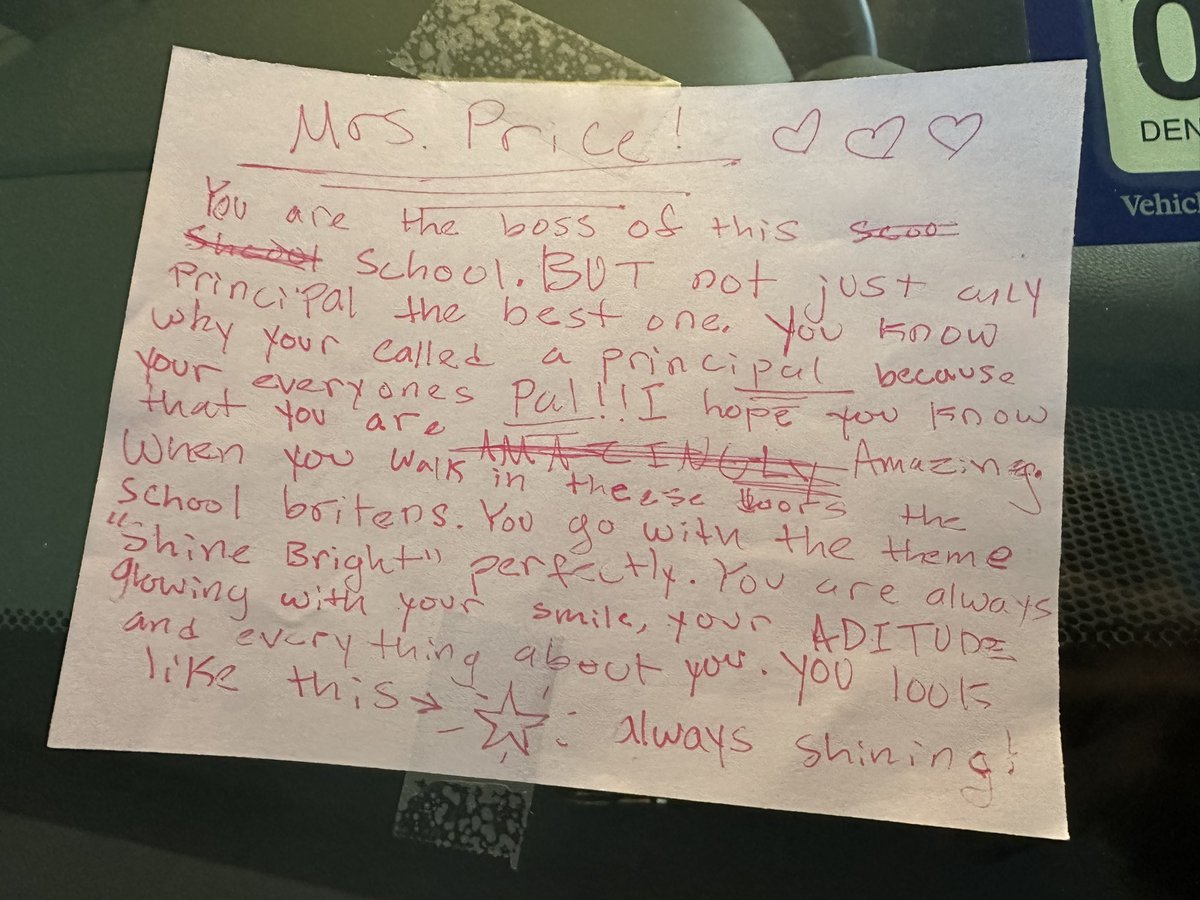 Mrs. Price! ♡ ♡ ♡
You are the boss of this scoo
Shcool School. BUT not just any
Principal the best one. You know
why your called a principal because
your everyones Pal!!! I hope you know
that you are AMAZINGLY Amazing.
When you walk in theese doors the
school britens. You go with the theme
"Shine Bright" perfectly. You are always
glowing with your smile, your ADITUDE
and everything about you. YOU look
like this → ☆ : always shining!
0
DEN
Vehic